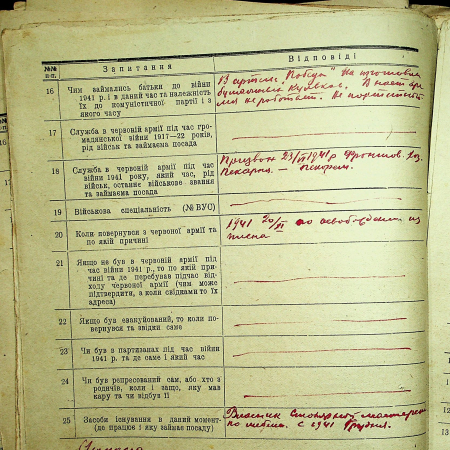 №№ п-п.
Запитання
Відповіді
16
Чим займались батьки до війни
1941 р. і в даний час та належність
їх до комуністичної партії і з
якого часу
В артели "Победа" на
В наст. время
мы не работаем. Не
17
Служба в червоній армії під час гро-
мадянської війни 1917—22 років,
рід військ та займаєма посада
18
Служба в червоній армії під час
війни 1941 року, який час, рід
військ, останнє військове звання
та займаєма посада
Призван 23/VI 1941 р
Пекарни. — пекарем.
19
Військова спеціальність (№ ВУС)
20
Коли повернувся з червоної армії та
по якій причині
1941 20/XI по освобождении из
плена
21
Якщо не був в червоній армії під
час війни 1941 р., то по якій при-
чині та де перебував підчас від-
ходу червоної армії (чим може
підтвердити, а коли свідками то їх
адреса)
22
Якщо був евакуйований, то коли по-
вернувся та звідки саме
23
Чи був в партизанах під час війни
1941 р. та де саме і який час
24
Чи був репресований сам, або хто з
родичів, коли і защо, яку мав
кару та чи відбув її
25
Засоби існування в даний момент
(де працює і яку займає посаду)
Власник
с 1941
12
13